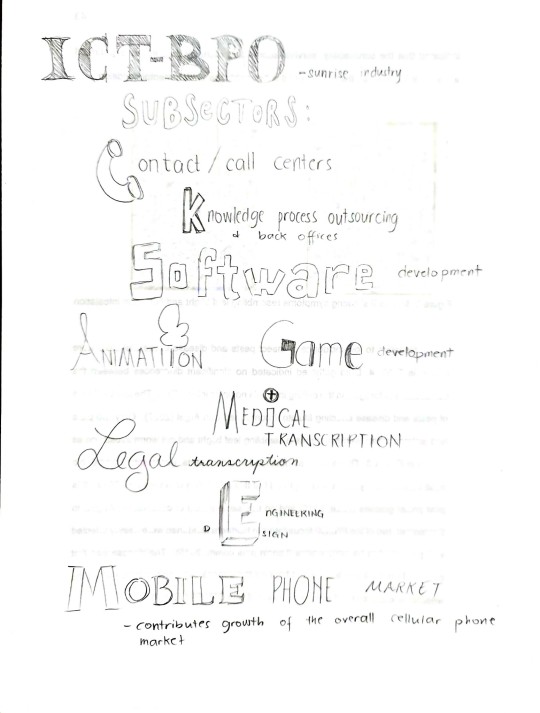 ICT-BPO - sunrise industry
SUBSECTORS:
Contact / call centers
Knowledge process outsourcing
& back offices
Software development
ANIMATION Game development
MEDICAL
TRANSCRIPTION
Legal transcription
ENGINEERING
DESIGN
MOBILE PHONE MARKET
- contributes growth of the overall cellular phone
market